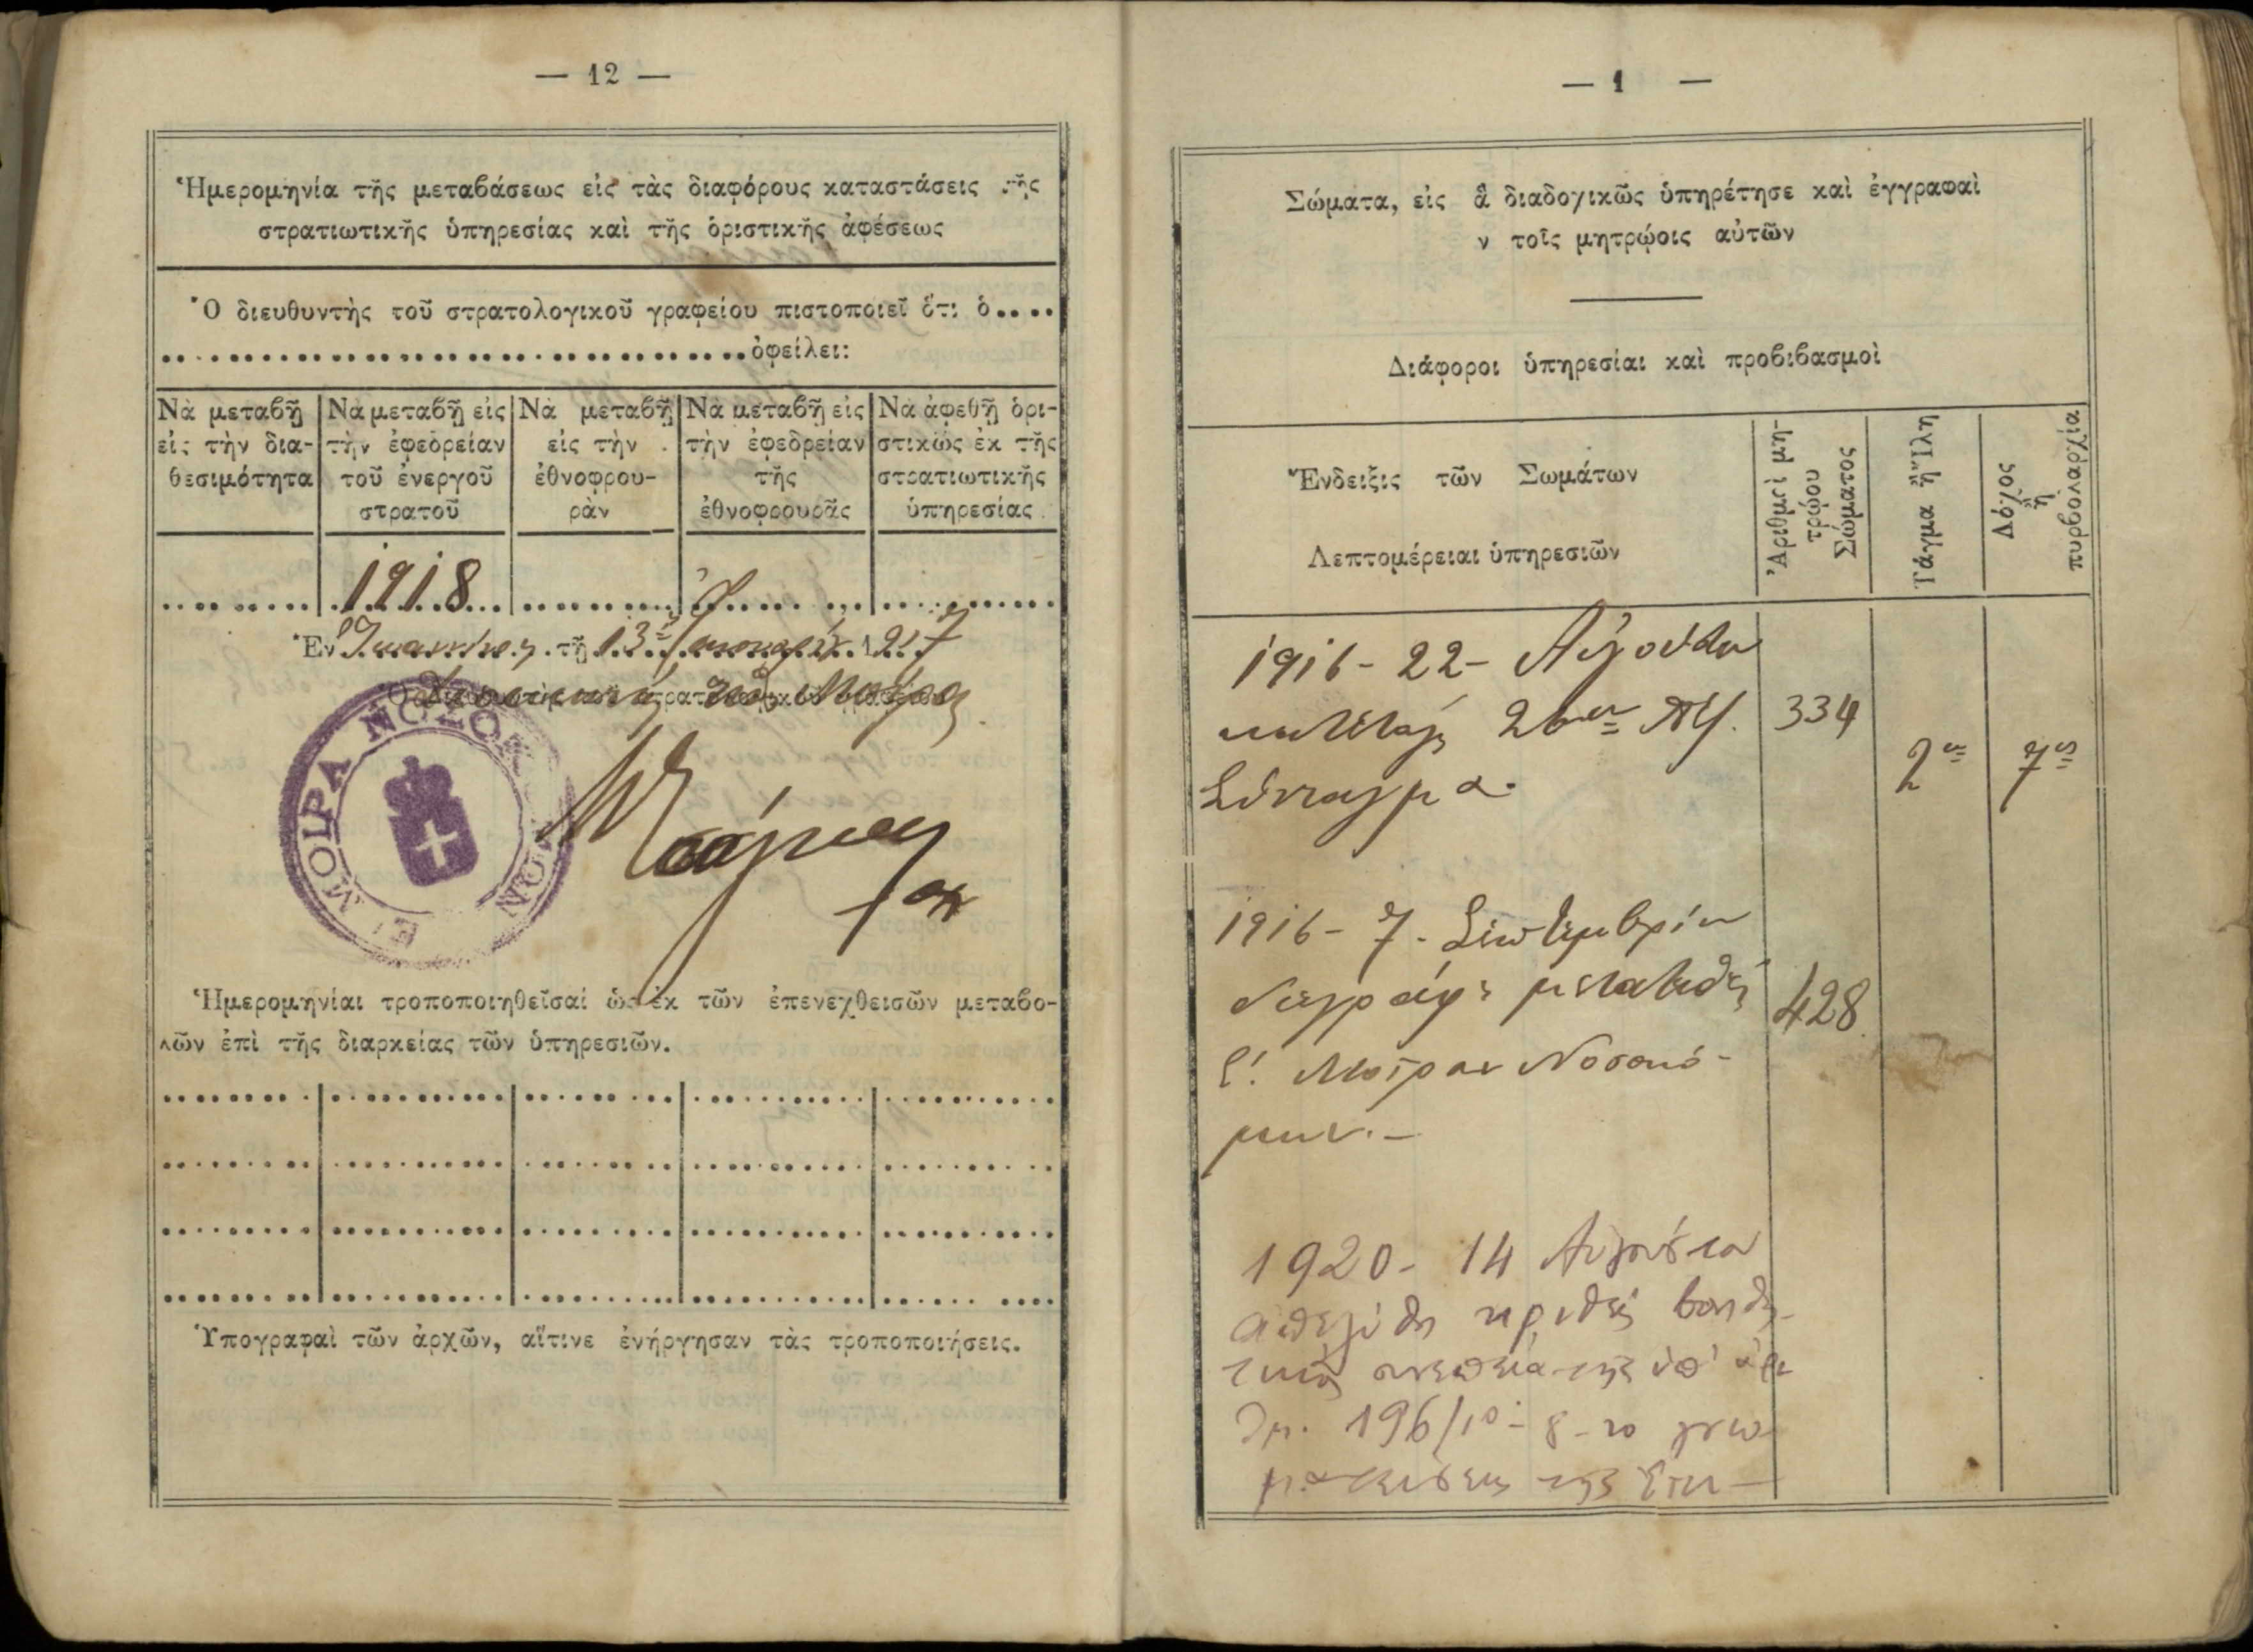 — 12 —
Ἡμερομηνία τῆς μεταβάσεως εἰς τὰς διαφόρους καταστάσεις τῆς
στρατιωτικῆς ὑπηρεσίας καὶ τῆς ὁριστικῆς ἀφέσεως
Ὁ διευθυντὴς τοῦ στρατολογικοῦ γραφείου πιστοποιεῖ ὅτι ὁ....
ὀφείλει:
Νὰ μεταβῇ εἰς τὴν δια-θεσιμότητα
Νὰ μεταβῇ εἰς τὴν ἐφεδρείαν τοῦ ἐνεργοῦ στρατοῦ
Νὰ μεταβῇ εἰς τὴν ἐθνοφρου-ρὰν
Νὰ μεταβῇ εἰς τὴν ἐφεδρείαν τῆς ἐθνοφρουρᾶς
Νὰ ἀφεθῇ ὁρι-στικῶς ἐκ τῆς στρατιωτικῆς ὑπηρεσίας
1918
Ἐν Ἰωαννίνοις τῇ 13ῃ 1917
τῆς Μοίρας
Ε' ΜΟΙΡΑ ΝΟΣΟΚΟΜΩΝ
Ἡμερομηνίαι τροποποιηθεῖσαι ὡς ἐκ τῶν ἐπενεχθεισῶν μεταβο-
λῶν ἐπὶ τῆς διαρκείας τῶν ὑπηρεσιῶν.
Ὑπογραφαὶ τῶν ἀρχῶν, αἵτινε ἐνήργησαν τὰς τροποποιήσεις.
— 1 —
Σώματα, εἰς ἃ διαδοχικῶς ὑπηρέτησε καὶ ἐγγραφαὶ
ν τοῖς μητρῴοις αὐτῶν
Διάφοροι ὑπηρεσίαι καὶ προβιβασμοὶ
Ἔνδειξις τῶν Σωμάτων
Λεπτομέρειαι ὑπηρεσιῶν
Ἀριθμοὶ μη-τρῴου Σώματος
Τάγμα ἢ Ἴλη
Λόχος ἢ πυροβολαρχία
1916 - 22 - Αὐγούστου
κατετάγη 26ον Πζ. 334
Σύνταγμα. 2ον 7ος
1916 - 7 - Σεπτεμβρίου
διεγράφη μετατεθεὶς 428
Ε'. Μοῖραν Νοσοκό-
μων. -
1920 - 14 Αὐγούστου
ἀπελύθη κριθεὶς βοηθη-
τικὸς συνεπεία τῆς ὑπ' ἀρι
θμ. 196/10 - 8 - 20 γνω-
ματεύσεως τῆς Ἐπι-